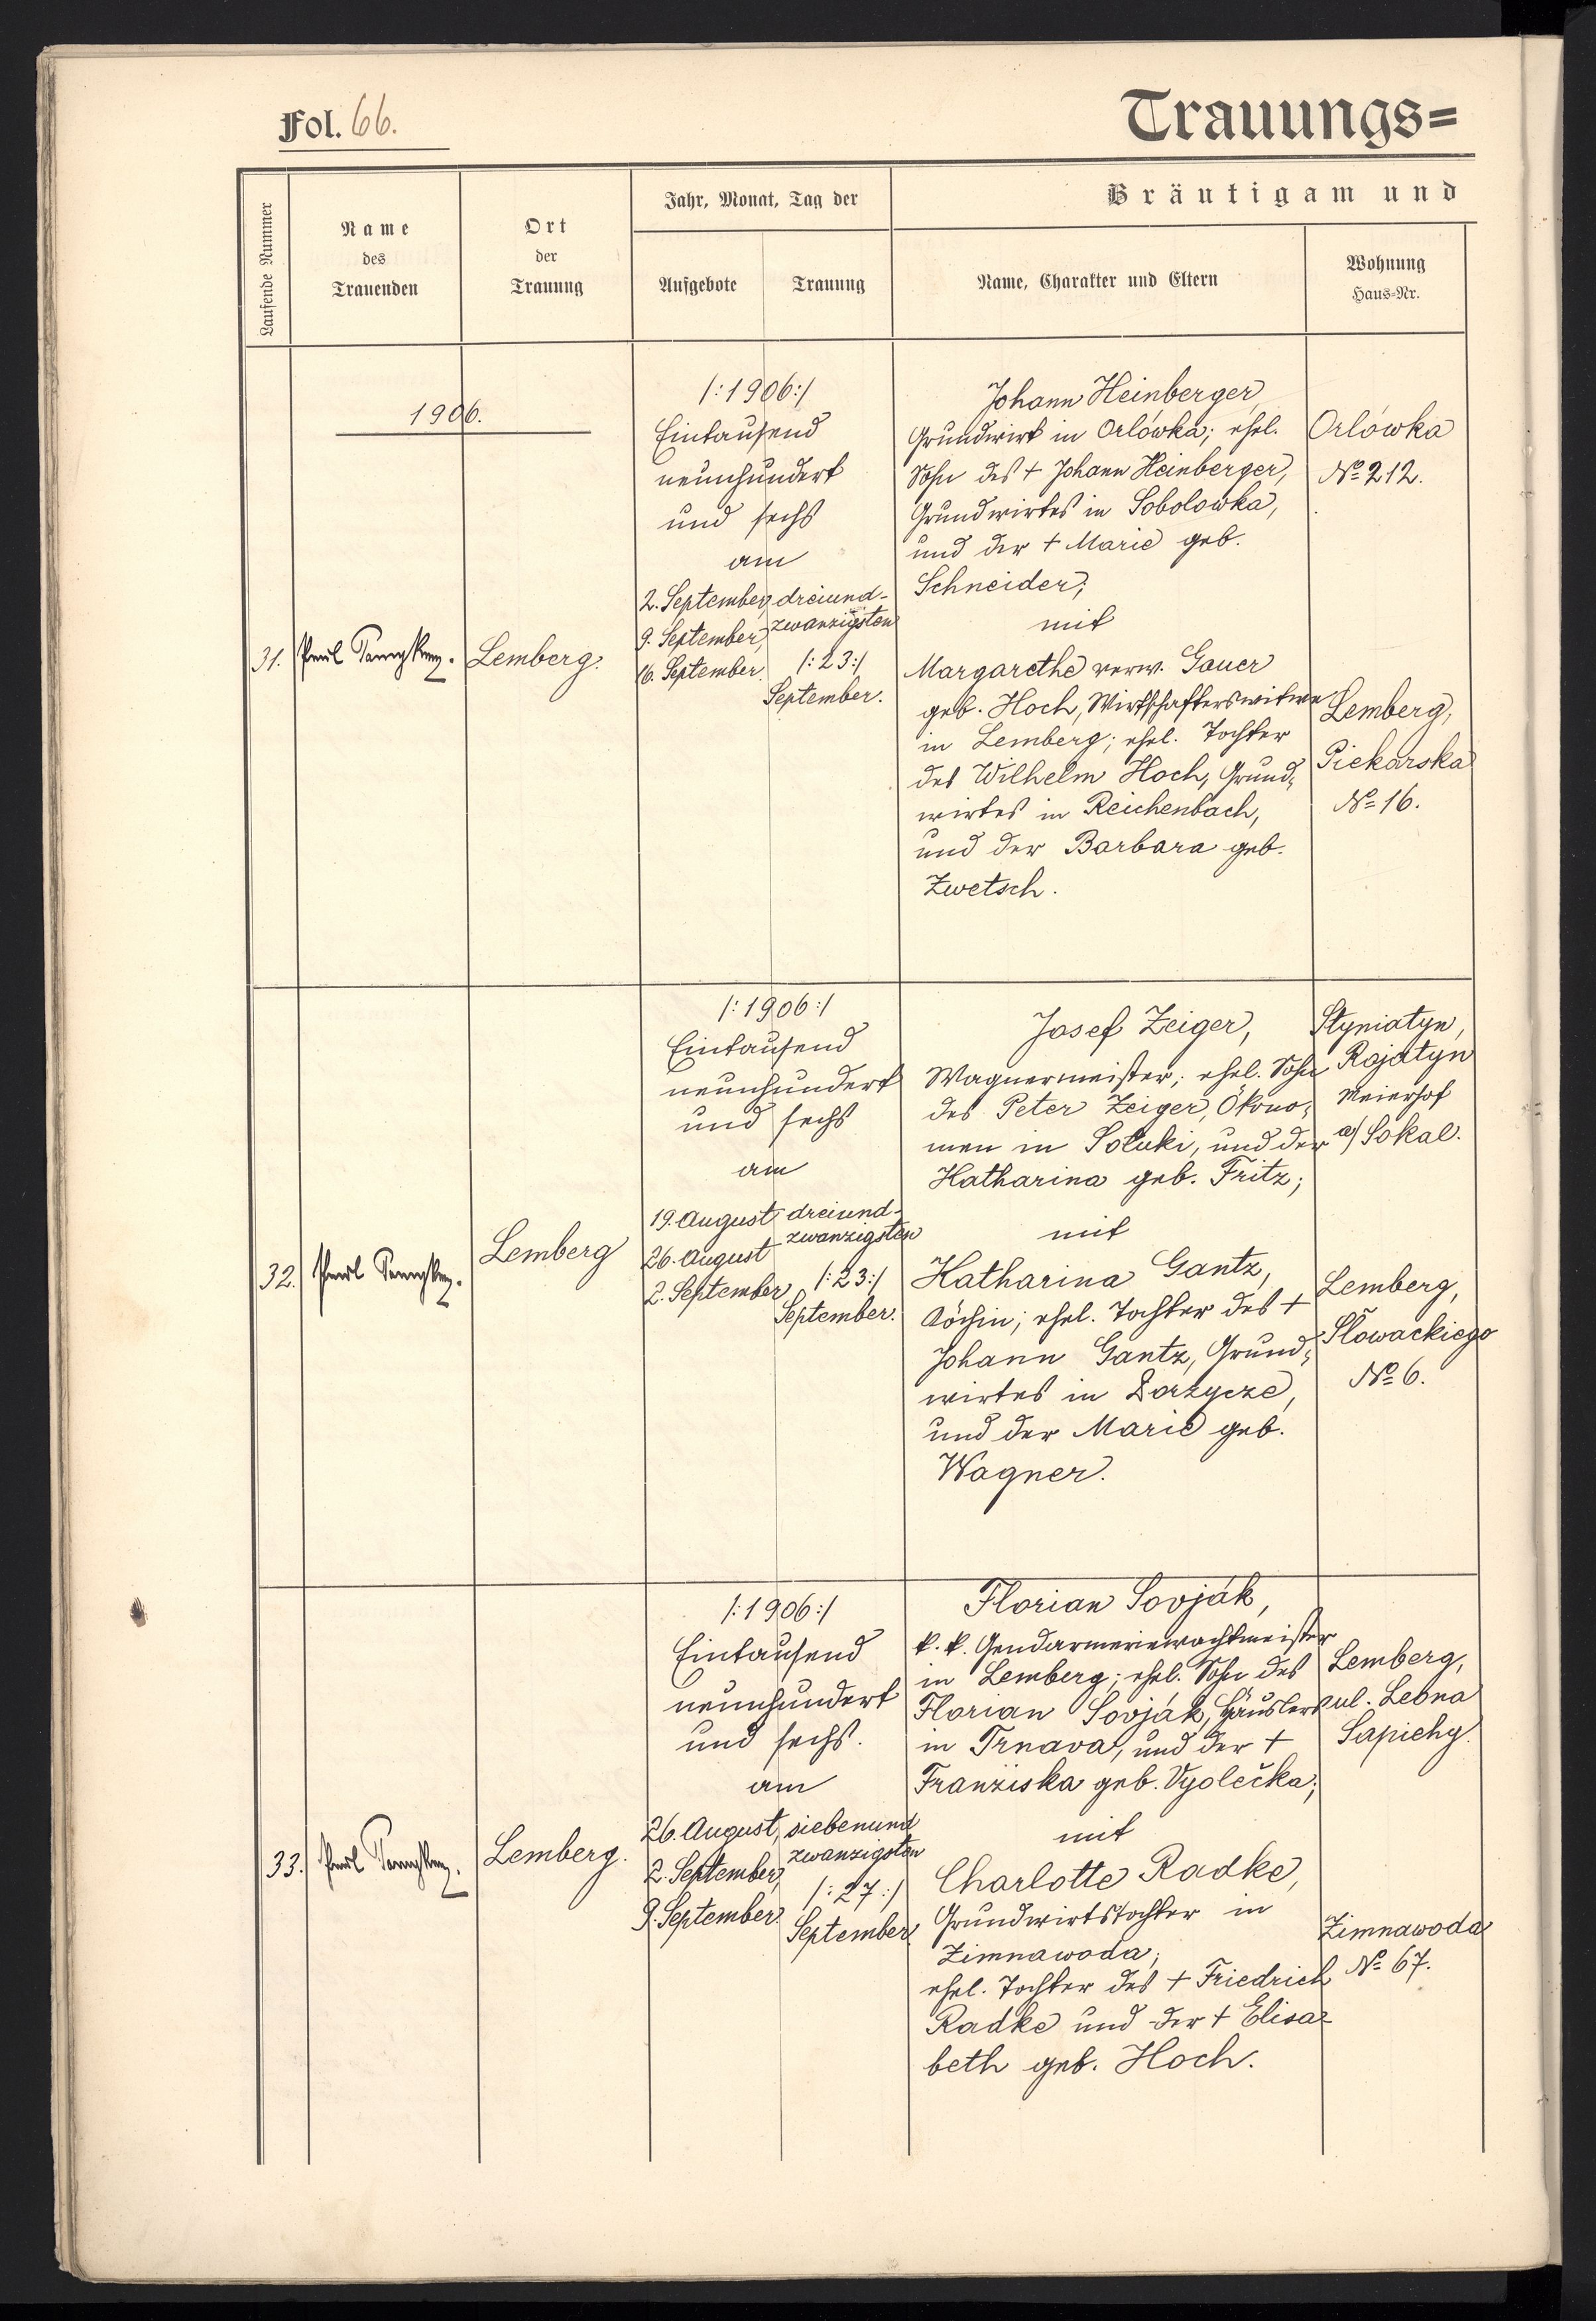 Fol. 66.
Trauungs=
Laufende Nummer
Name
des
Trauenden
Ort
der
Trauung
Jahr, Monat, Tag der
Aufgebote
Trauung
Bräutigam und
Name, Charakter und Eltern
Wohnung
Haus=Nr.
1906.
31.
Lemberg.
/:1906:/
Eintausend
neunhundert
und sechs
am
2. September,
9. September,
16. September.
dreiund-
zwanzigsten
/:23:/
September.
Johann Heinberger,
Grundwirt in Orlówka; ehel.
Sohn des + Johann Heinberger,
Grundwirtes in Sobolowka,
und der + Marie geb.
Schneider;
mit
Margarethe verw. Gauer
geb. Hoch, Wirtschafterswitwe
in Lemberg; ehel. Tochter
des Wilhelm Hoch, Grund-
wirtes in Reichenbach,
und der Barbara geb.
Zwetsch.
Orlówka
No 212.
Lemberg,
Piekarska
No 16.
32.
Lemberg
/:1906:/
Eintausend
neunhundert
und sechs
am
19. August
26. August
2. September
dreiund-
zwanzigsten
/:23:/
September.
Josef Zeiger,
Wagnermeister; ehel. Sohn
des Peter Zeiger, Ökono-
men in Sołuki, und der
Katharina geb. Fritz;
mit
Katharina Gantz,
Köchin; ehel. Tochter des +
Johann Gantz, Grund-
wirtes in Zarzycze,
und der Marie geb.
Wagner.
Rojatyn
Meierhof
a/ Sokal.
Lemberg,
Słowackiego
No 6.
33.
Lemberg.
/:1906:/
Eintausend
neunhundert
und sechs.
am
26. August,
2. September,
9. September.
siebenund
zwanzigsten
/:27:/
September.
Florian Sovják,
k. k. Gendarmeriewachtmeister
in Lemberg; ehel. Sohn des
Florian Sovják, Häuslers
in Trnava, und der +
Franziska geb. Vyolečka;
mit
Charlotte Radke,
Grundwirtstochter in
Zimnawoda;
ehel. Tochter des + Friedrich
Radke und der + Elisa-
beth geb. Hoch.
Lemberg,
ul. Leona
Sapiehy.
Zimnawoda
No 67.